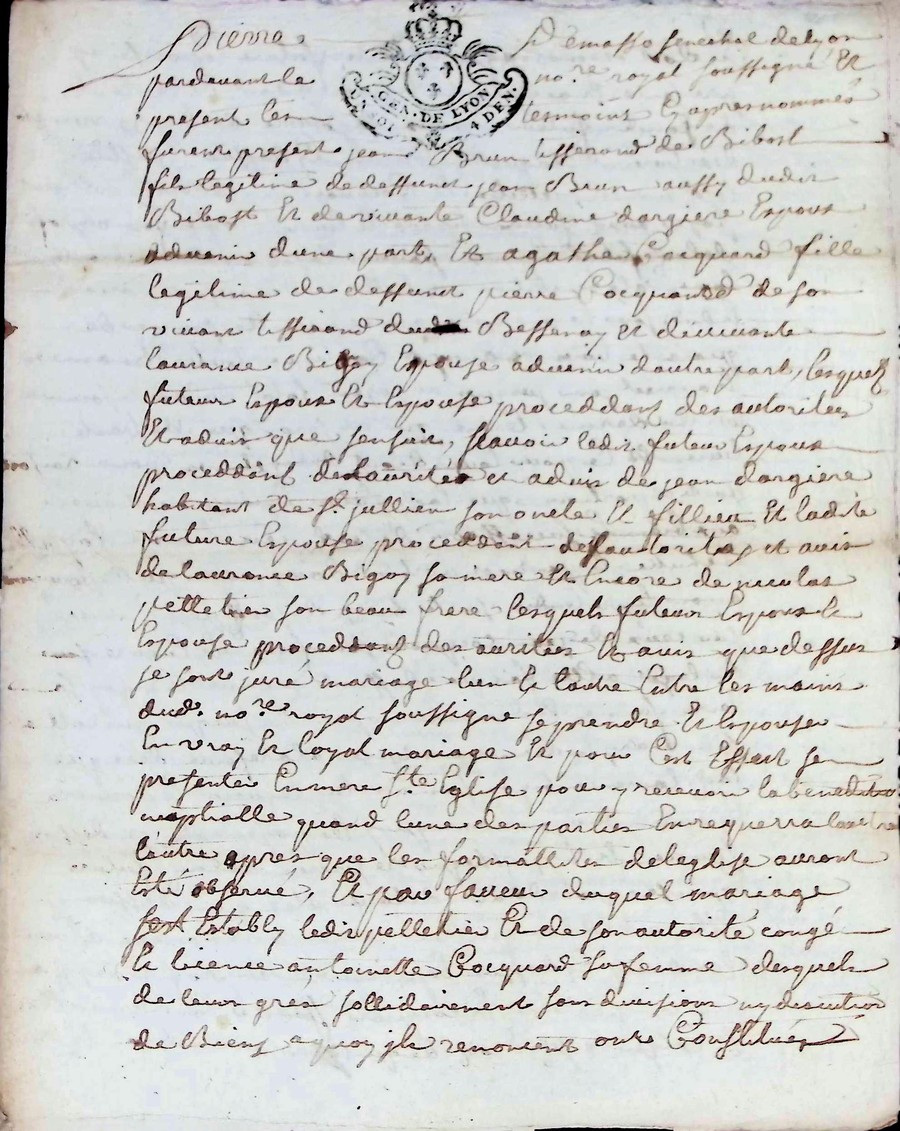 Pierre Demasso senechal de Lyon
pardevant le no.re royal soussigné Et
present les tesmoins Cy apres nommés
GEN. DE LYON
4 DEN.
furent present jean Brun tisserand de Bibost
fils legitime de deffunct jean Brun aussy dudit
Bibost Et de vivante Claudine dargiere Espoux
advenir dune part, Et agathe Cocquard fille
legitime de deffunct pierre Cocquard de son
vivant tisserand Bessenay et de vivante
Laurance Bigoy Espouse advenir dautre part, lesquels
futeur Espoux Et Espouse proceddant des autorites
Et advis que sensuit, scavoir ledit futeur Espoux
proceddant de laurités et advis de jean dargiere
habitant de St jullien son oncle Et fillieu Et ladite
future Espouse proceddent de lautorités et avis
de laurance Bigoy sa mere Et Encore de nicolas
pelletier son beau frere lesquels futeur Espoux Et
Espouse proceddant des aurites Et avis que dessus
se sont juré mariage lun Et lautre Entre les mains
dud. no.re royal soussigne se prendre Et Espouser
En vray Et loyal mariage Et pour Cest Effect se
presenter En mere Ste Eglise pour y recevoir la benediction
nuptialle quand lune des parties En requerra
lautre apres que les formallites de leglise auront
Esté observé, Et par faveur duquel mariage
sest Estably ledit pelletier Et de son autorité congé
Et licence antoinette Cocquard sa femme lesquels
de leurs grés sollidairement sans divisions ny discution
de Biens a quoy ils renoncent ont Constitués